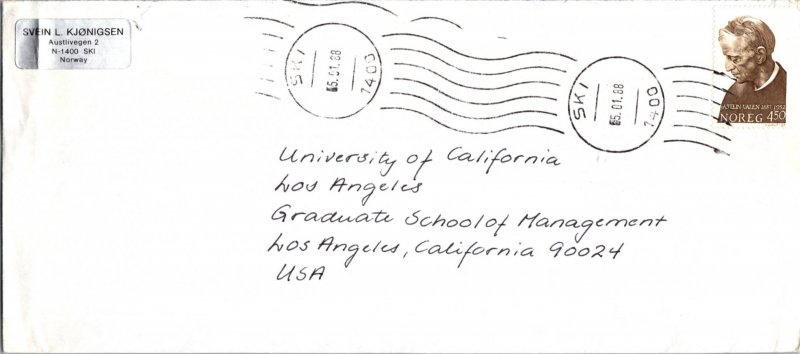 SVEIN L. KJØNIGSEN
Austlivegen 2
N-1400 SKI
Norway
SKI
15.01.88
1400
SKI
15.01.88
1400
FARTEIN VALEN 1887-1952
NOREG 450
University of California
Los Angeles
Graduate School of Management
Los Angeles, California 90024
USA